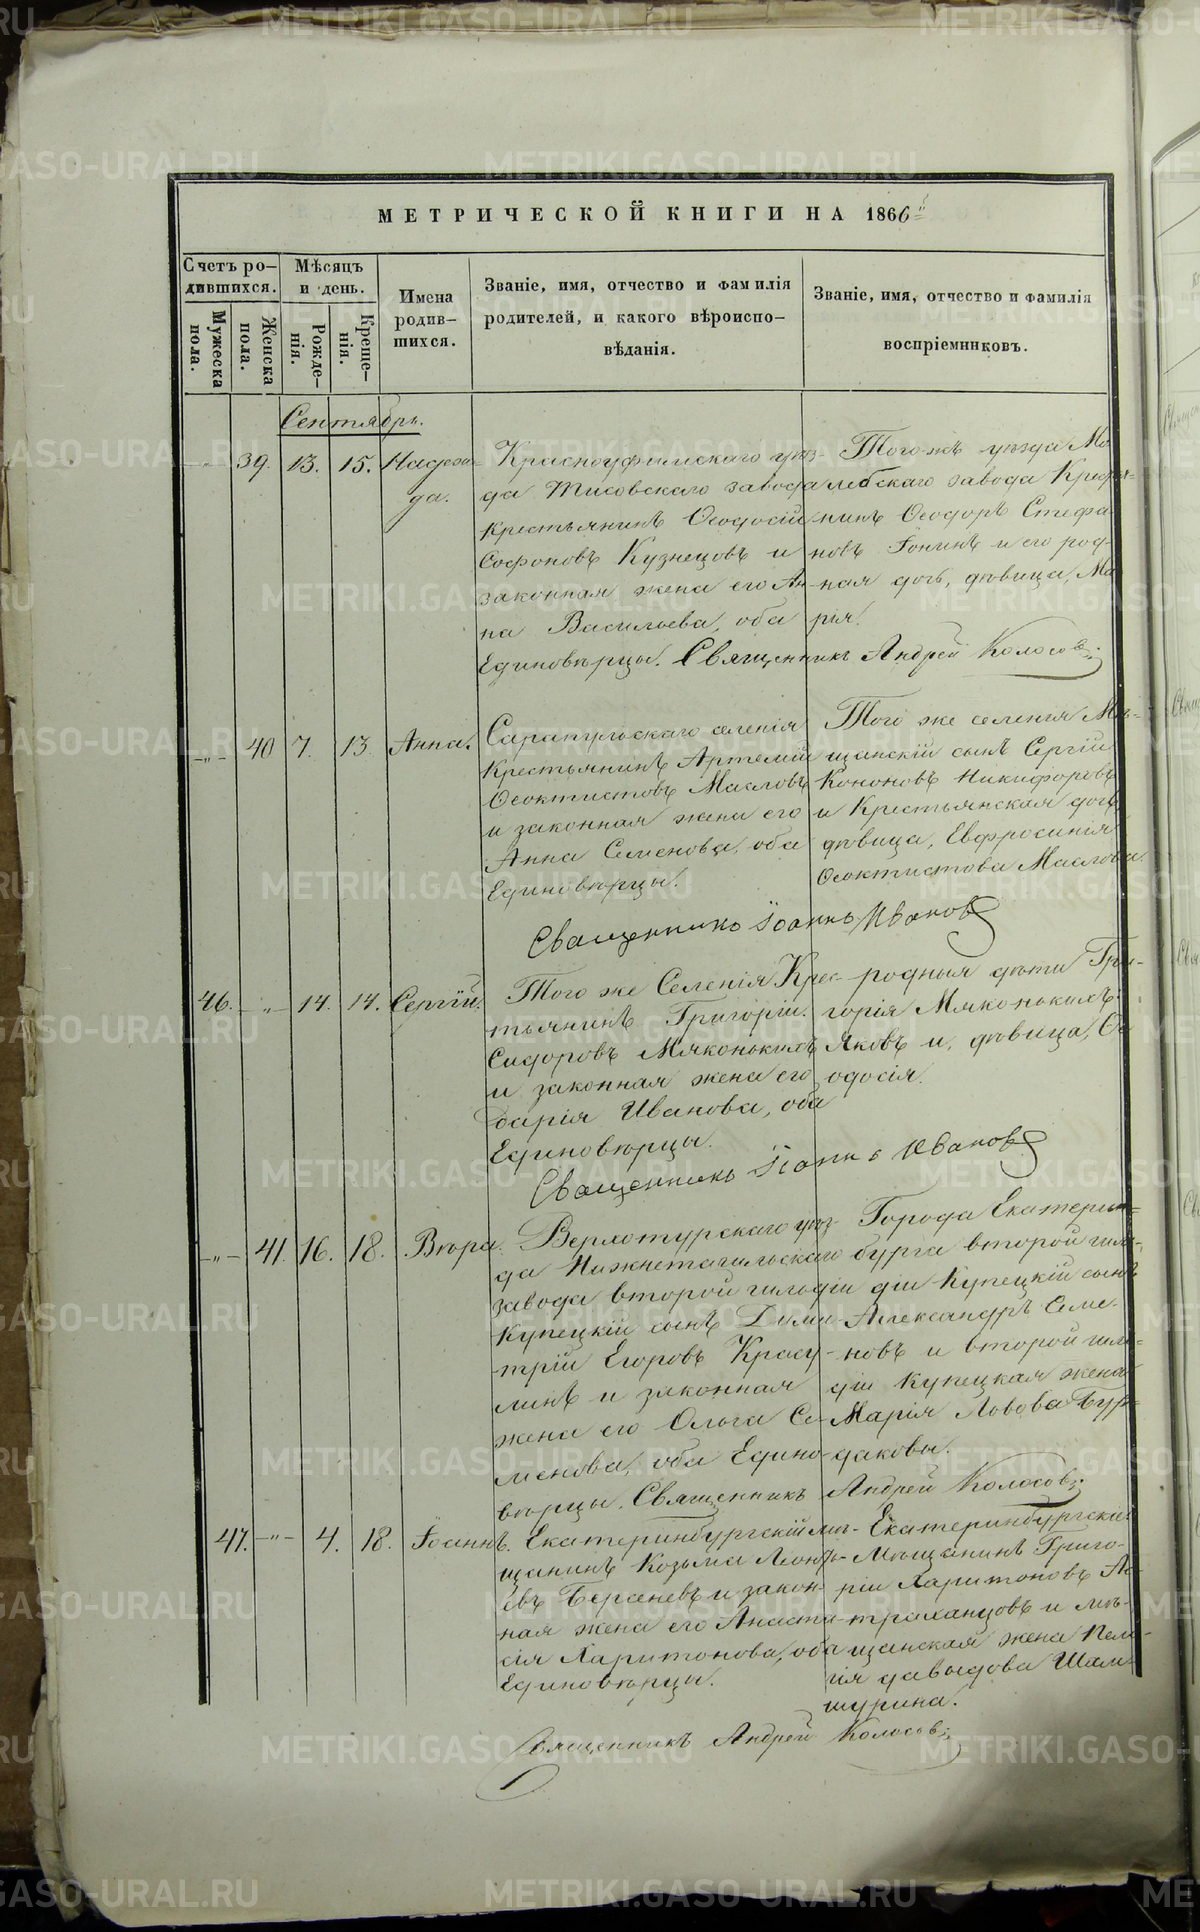 МЕТРИЧЕСКОЙ КНИГИ НА 1866
Счетъ родившихся.
Мужеска пола.
Женска пола.
Мѣсяцъ и день.
Рожденія.
Крещенія.
Имена родившихся.
Званіе, имя, отчество и фамилія родителей, и какого вѣроисповѣданія.
Званіе, имя, отчество и фамилія воспріемниковъ.
Сентябрь.
39. 13. 15. Надежда.
Красноуфимскаго уѣз-
да Тисовскаго завода
крестьянинъ Ѳеодосій
Софоновъ Кузнецовъ и
законная жена его Ан-
на Васильева, оба
Единовѣрцы.
Того-жъ уѣзда Мо-
лебскаго завода Крестья-
нинъ Ѳеодоръ Стефа
новъ Іонинъ и его род-
ная дочь, дѣвица, Ма
рія.
Священникъ Андрей Колосовъ.
40 7. 13. Анна.
Сарапульскаго селенія
Крестьянинъ Артемій
Ѳеоктистовъ Масловъ
и законная жена его
Анна Семенова, оба
Единовѣрцы.
Того же селенія Мѣ-
щанскій сынъ Сергій
Кононовъ Никифоровъ
и Крестьянская дочь
дѣвица, Евфросинія
Ѳеоктистова Маслова
Священникъ Іоаннъ Ивановъ
46. 14. 14. Сергій.
Того же Селенія Крес-
тьянинъ Григорій
Сидоровъ Мяконькихъ
и законная жена его
Дарія Иванова, оба
Единовѣрцы.
родныя дѣти Гри-
горія Мяконькихъ:
Яковъ и, дѣвица, Ѳе
одосія.
Священникъ Іоаннъ Ивановъ
41. 16. 18. Вѣра.
Верхотурскаго уѣз-
да Нижнетагильскаго
завода второй гильдіи
Купецкій сынъ Дими-
трій Егоровъ Красу-
линъ и законная
жена его Ольга Се-
менова, оба Едино-
вѣрцы.
Города Екатерин-
бурга второй гиль-
діи Купецкій сынъ
Александръ Семе-
новъ и второй гиль-
діи Купецкая жена
Марія Львова Бур-
даковы.
Священникъ Андрей Колосовъ.
47. 4. 18. Іоаннъ.
Екатеринбургскій мѣ-
щанинъ Козьма Леонть-
евъ Берсеневъ и закон-
ная жена его Анаста-
сія Харитонова, оба
Единовѣрцы.
Екатеринбургскій
Мѣщанинъ Григо-
рій Харитоновъ Ас-
траханцовъ и мѣ-
щанская жена Пела-
гія Давыдова Шам-
шурина.
Священникъ Андрей Колосовъ.
METRIKI.GASO-URAL.RU